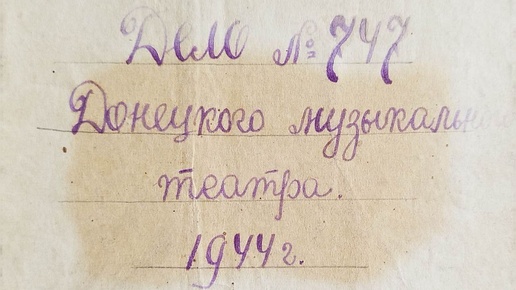 Дело № 747
Донецкого музыкального
театра.
1944 г.